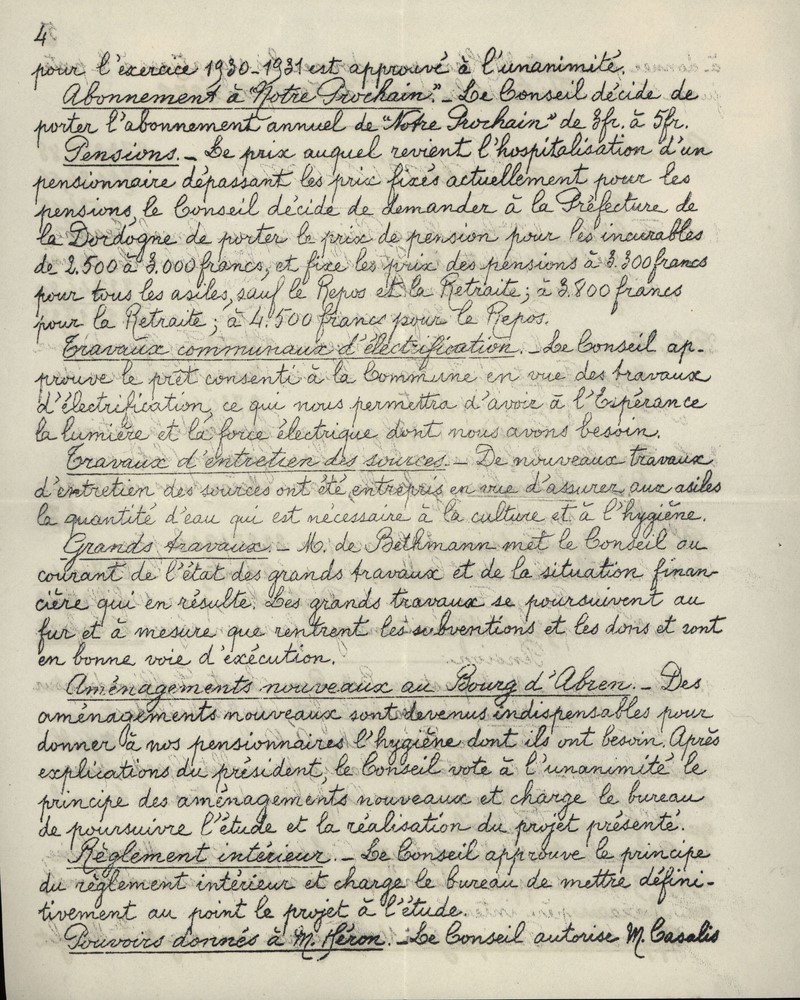 4
pour l'exercice 1930-1931 est approuvé à l'unanimité.
Abonnement à "Notre Prochain". - Le Conseil décide de
porter l'abonnement annuel de "Notre Prochain" de 3fr. à 5fr.
Pensions. - Le prix auquel revient l'hospitalisation d'un
pensionnaire dépassant les prix fixés actuellement pour les
pensions, le Conseil décide de demander à la Préfecture de
la Dordogne de porter le prix de pension pour les incurables
de 2.500 à 3.000 francs, et fixe les prix des pensions à 3.300 francs
pour tous les asiles, sauf le Repos et la Retraite; à 3.800 francs
pour la Retraite; à 4.500 francs pour le Repos.
Travaux communaux d'électrification. - Le Conseil ap-
prouve le prêt consenti à la Commune en vue des travaux
d'électrification, ce qui nous permettra d'avoir à l'Espérance
la lumière et la force électrique dont nous avons besoin.
Travaux d'entretien des sources. - De nouveaux travaux
d'entretien des sources ont été entrepris en vue d'assurer aux asiles
la quantité d'eau qui est nécessaire à la culture et à l'hygiène.
Grands travaux. - M. de Bethmann met le Conseil au
courant de l'état des grands travaux et de la situation finan-
cière qui en résulte. Les grands travaux se poursuivent au
fur et à mesure que rentrent les subventions et les dons et sont
en bonne voie d'exécution.
Aménagements nouveaux au Bourg d'Abren. - Des
aménagements nouveaux sont devenus indispensables pour
donner à nos pensionnaires l'hygiène dont ils ont besoin. Après
explications du président, le Conseil vote à l'unanimité le
principe des aménagements nouveaux et charge le bureau
de poursuivre l'étude et la réalisation du projet présenté.
Règlement intérieur. - Le Conseil approuve le principe
du règlement intérieur et charge le bureau de mettre défini-
tivement au point le projet à l'étude.
Pouvoirs donnés à M. Héron. - Le Conseil autorise M. Casalis